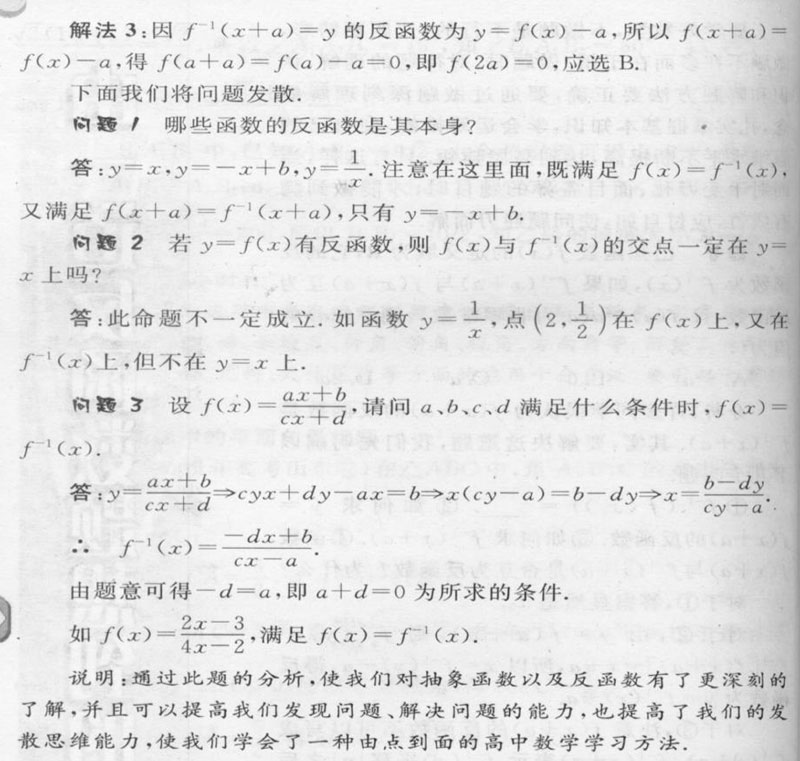 解法3:因 f⁻¹(x+a)=y 的反函数为 y=f(x)-a,所以 f(x+a)=
f(x)-a,得 f(a+a)=f(a)-a=0,即 f(2a)=0,应选 B.
下面我们将问题发散.
问题 1 哪些函数的反函数是其本身?
答:y=x,y=-x+b,y=1/x. 注意在这里面,既满足 f(x)=f⁻¹(x),
又满足 f(x+a)=f⁻¹(x+a),只有 y=-x+b.
问题 2 若 y=f(x)有反函数,则 f(x)与 f⁻¹(x)的交点一定在 y=
x 上吗?
答:此命题不一定成立. 如函数 y=1/x,点(2,1/2)在 f(x)上,又在
f⁻¹(x)上,但不在 y=x 上.
问题 3 设 f(x)=(ax+b)/(cx+d),请问 a、b、c、d 满足什么条件时,f(x)=
f⁻¹(x).
答:y=(ax+b)/(cx+d)⇒cyx+dy-ax=b⇒x(cy-a)=b-dy⇒x=(b-dy)/(cy-a).
∴ f⁻¹(x)=(-dx+b)/(cx-a).
由题意可得-d=a,即 a+d=0 为所求的条件.
如 f(x)=(2x-3)/(4x-2),满足 f(x)=f⁻¹(x).
说明:通过此题的分析,使我们对抽象函数以及反函数有了更深刻的
了解,并且可以提高我们发现问题、解决问题的能力,也提高了我们的发
散思维能力,使我们学会了一种由点到面的高中数学学习方法.